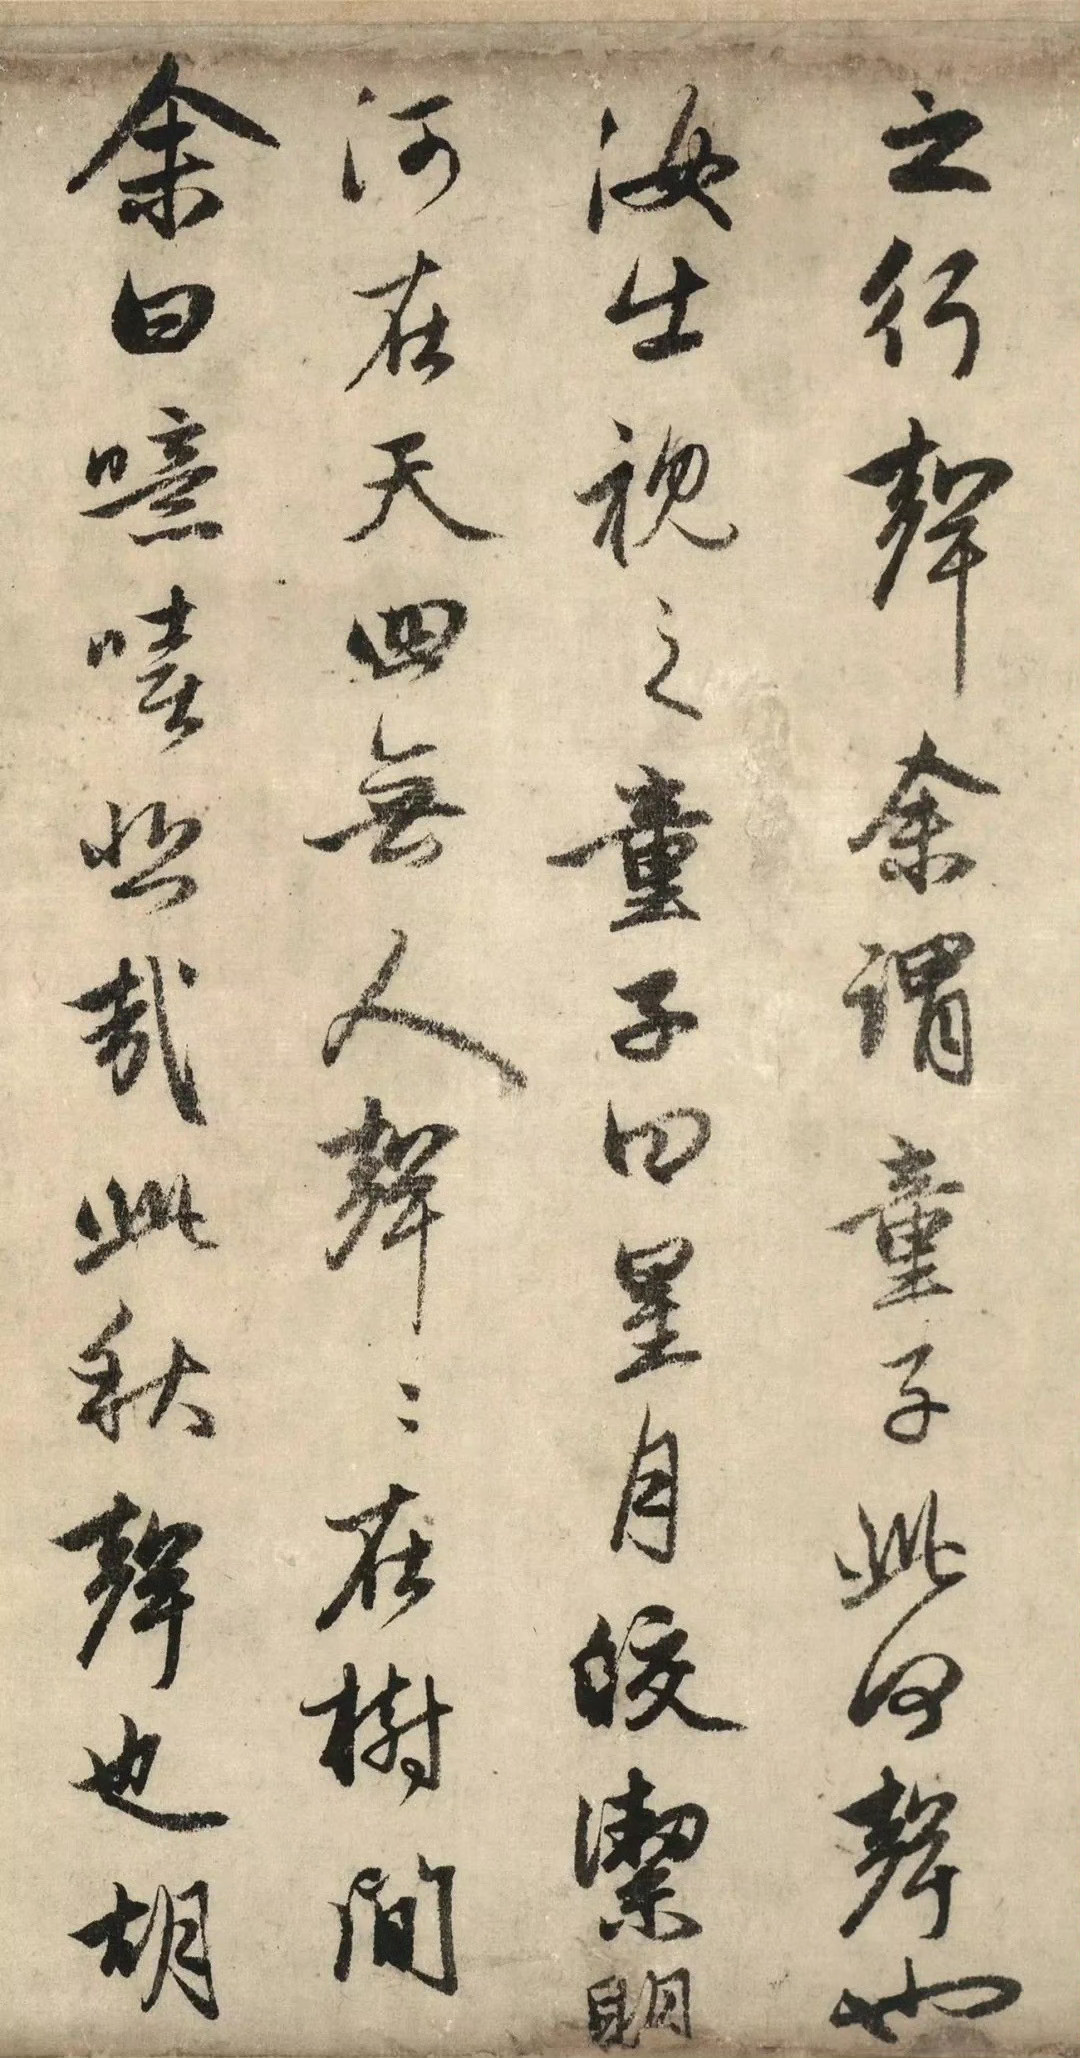 之行聲余謂童子此何聲也
汝出視之童子曰星月皎潔明
河在天四無人聲〻在樹間
余曰噫嘻悲哉此秋聲也胡